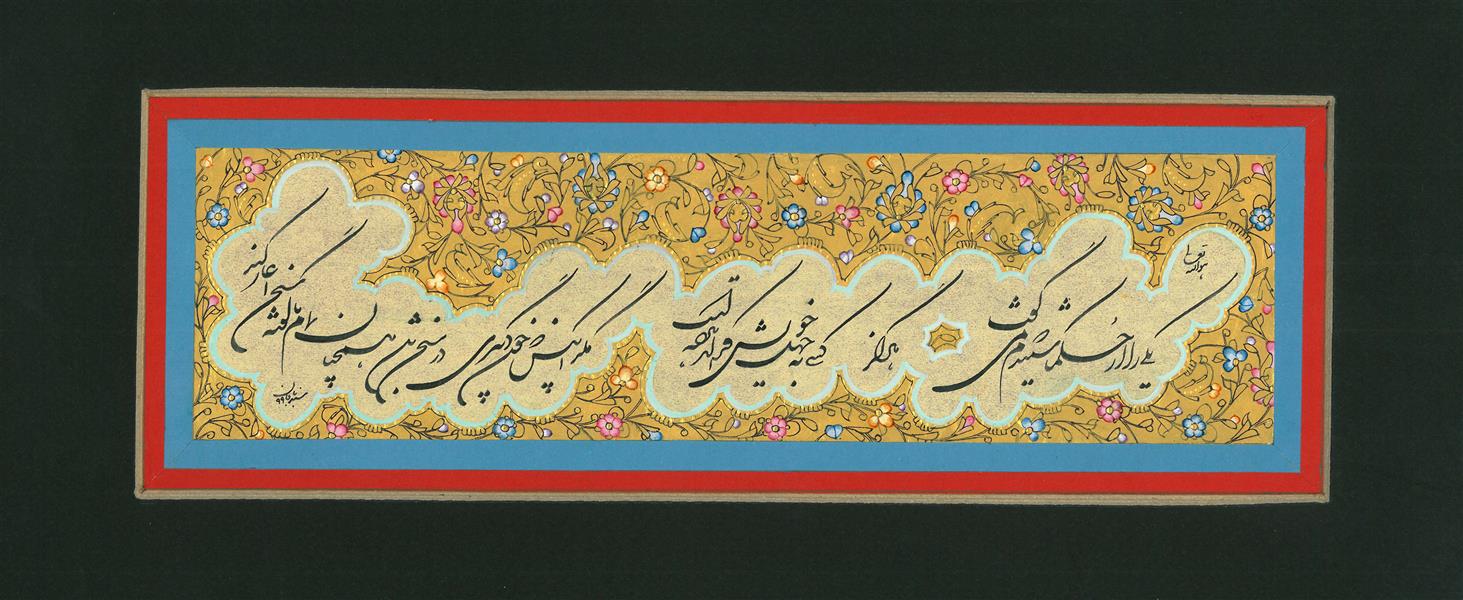 هو الله تعالی
یکی را از حکما شنیدم که می گفت هرگز کسی به جهل خویش اقرار نکرده است مگر آنکس که چون دیگری در سخن باشد همچنان تمام ناگفته سخن آغاز کند
۹۹